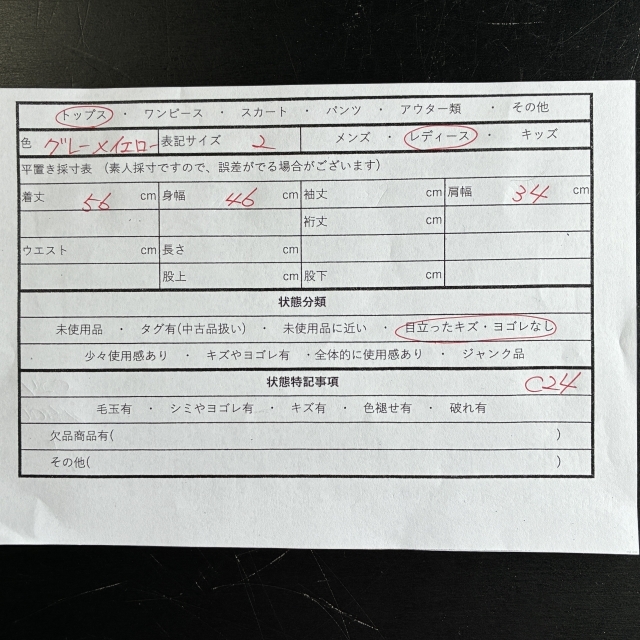 トップス ・ ワンピース ・ スカート ・ パンツ ・ アウター類 ・ その他
色 グレー×イエロー 表記サイズ 2 メンズ ・ レディース ・ キッズ
平置き採寸表 （素人採寸ですので、誤差がでる場合がございます）
着丈 56 cm 身幅 46 cm 袖丈 cm 肩幅 34 cm
裄丈 cm
ウエスト cm 長さ cm
股上 cm 股下 cm
状態分類
未使用品 ・ タグ有(中古品扱い) ・ 未使用品に近い ・ 目立ったキズ・ヨゴレなし
少々使用感あり ・ キズやヨゴレ有 ・全体的に使用感あり ・ ジャンク品
状態特記事項 C24
毛玉有 ・ シミやヨゴレ有 ・ キズ有 ・ 色褪せ有 ・ 破れ有
欠品商品有( )
その他( )